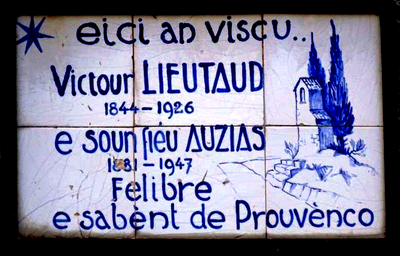 eici an viscu..
Victour LIEUTAUD
1844-1926
e soun fiéu AUZIAS
1881-1947
Felibre
e sabènt de Prouvènço